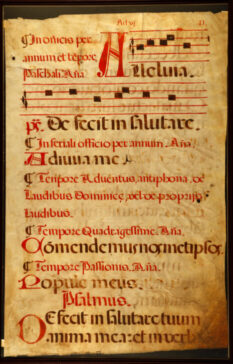 In officio per
annum et tẽpore
Paschali. Aña.
Alleluia.
Ps. Defecit in salutare.
In feriali officio per annum. Aña.
Adiuva me
Tempore Aduentus, antiphona, de
Laudibus Dominice, vel de proprijs
laudibus.
Tempore Quadragessime. Aña.
Comendemus nosmetipsos
Tempore Passionis. Aña.
Popule meus.
Psalmus.
Defecit in salutare tuum
anima mea: et in verb